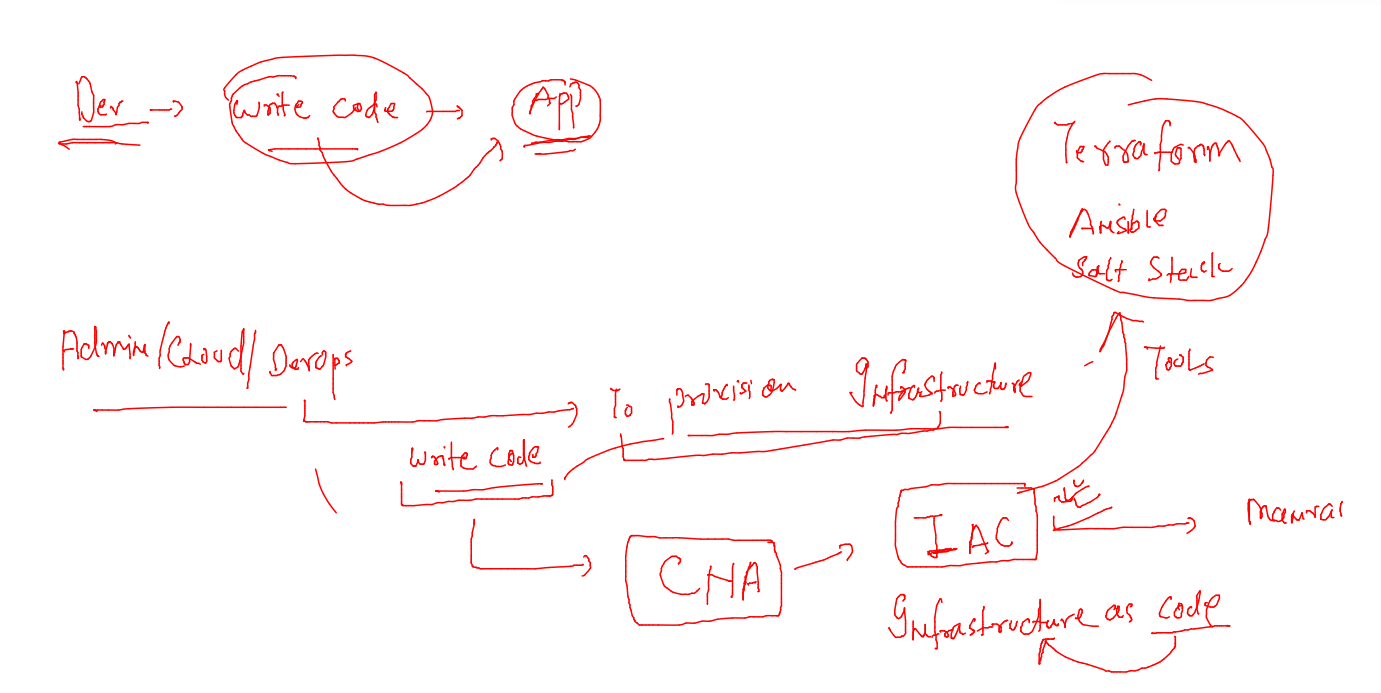 Dev → write code → App
Terraform
Ansible
Salt Stack
Admin/Cloud/Devops
To provision Infrastructure
Tools
write code
CHA
IAC
Manual
Infrastructure as code